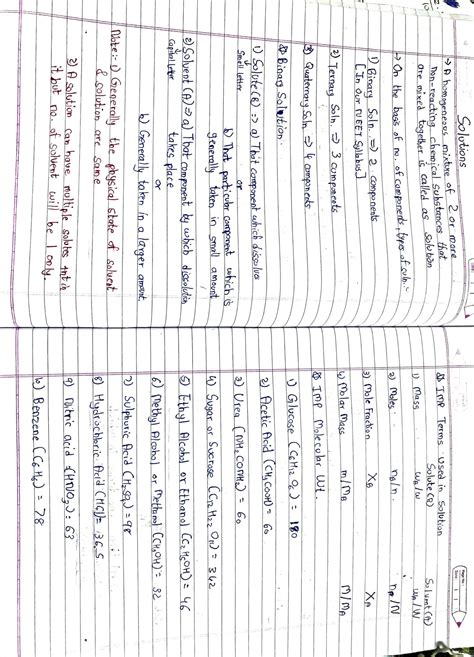 Solutions
→ A homogeneous mixture of 2 or more
non-reacting chemical substances that
are mixed together is called as solution
→ On the basis of no. of components, types of soln. :-
1) Binary Soln. ⇒ 2 components
[In our NEET Syllabus]
2) Ternary Soln. ⇒ 3 components
3) Quaternary Soln. ⇒ 4 components
Binary Solution:
1) Solute (B) ⇒ a) That component which dissolves
Small letter
or
b) That particular component which is
generally taken in small amount
2) Solvent (A) ⇒ a) That component by which dissolution
Capital letter
takes place
or
b) Generally taken in a larger amount
Note:- 1) Generally the physical state of solvent
& solution are same
2) A solution can have multiple solutes in
it but no. of solvent will be 1 only.
IMP Terms Used in Solution
Solute (B) Solvent (A)
1) Mass WB/w WA/W
2) Moles nB/n nA/N
3) Mole Fraction XB XA
4) Molar Mass m/MB M/MA
IMP Molecular Wt.
1) Glucose (C6H12O6) = 180
2) Acetic Acid (CH3COOH) = 60
3) Urea (NH2CONH2) = 60
4) Sugar or Sucrose (C12H22O11) = 342
5) Ethyl Alcohol or Ethanol (C2H5OH) = 46
6) Methyl Alcohol or Methanol (CH3OH) = 32
7) Sulphuric Acid (H2SO4) = 98
8) Hydrochloric Acid (HCl) = 36.5
9) Nitric acid (HNO3) = 63
10) Benzene (C6H6) = 78